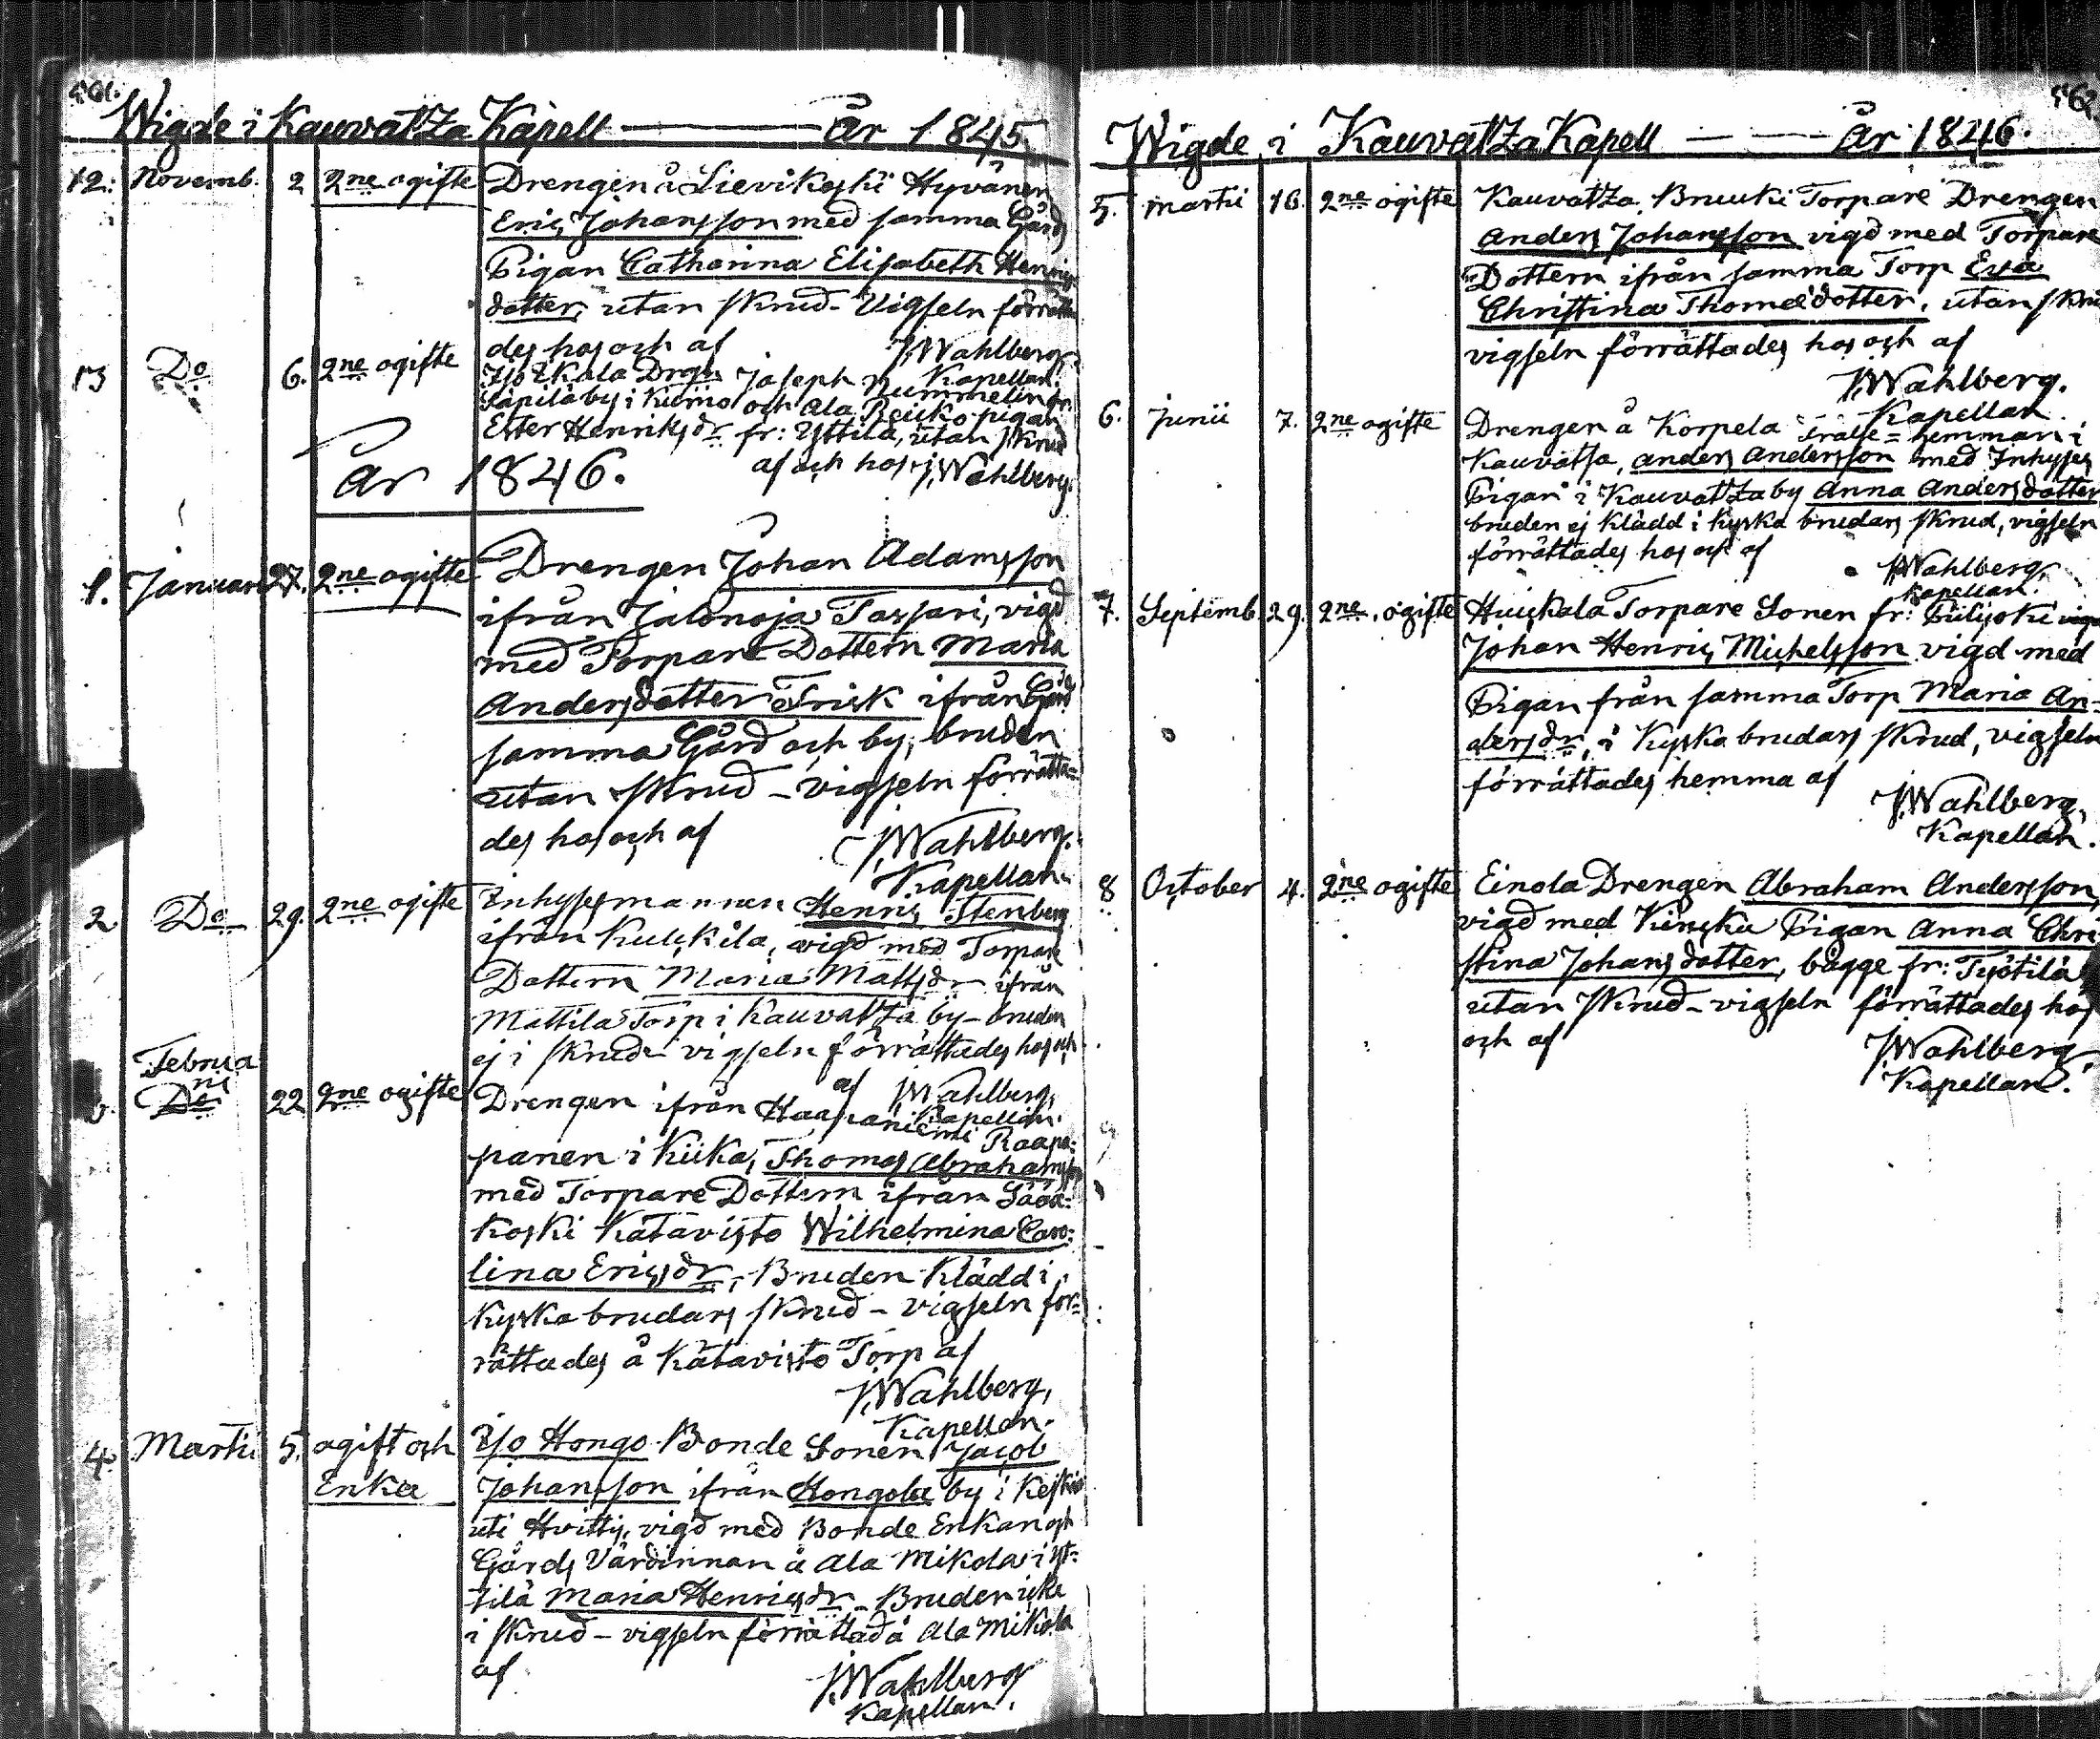 Wigde i Kauvatza Kapell — År 1845.
12. Novemb. 2 2ne ogifte Drengen å Lievikoski Hyvänen
Eric Johansson med samma Gårds
Pigan Catharina Elisabeth Henrics
dotter, utan skrud - Vigseln förrätta
des hos och af J. Wahlberg
Kapellan.
13 Do 6. 2ne ogifte Iso Ekola Drgn Joseph Nummelin fr.
Säpilä by i Kumo och Ala Reuko pigan
Ester Henriksdr fr: Yttilä, utan skrud
af och hos J. Wahlberg.
År 1846.
1. Januari 27. 2ne ogifte Drengen Johan Adamsson
ifrån Jalonoja Tassari, vigd
med Torpare Dottern Maria
Andersdotter Frisk ifrån
samma Gård och by, bruden
utan skrud - vigseln förrätta-
des hos och af J. Wahlberg.
Kapellan.
2 Do 29. 2ne ogifte Inhysesmannen Henric Stenberg
ifrån Kulckila, vigd med Torpare
Dottern Maria Mattsdr ifrån
Mattila Torp i Kauvatza by - bruden
ej i skrud vigseln förrättades hos och
af J. Wahlberg,
Kapellan.
Februa
ri
Do 22 2ne ogifte Drengen ifrån Haapaniemi Raapa-
panen i Kiika, Thomas Abrahamsson
med Torpare Dottern ifrån Sääx-
koski Katavisto Wilhelmina Caro-
lina Ericsdr, Bruden klädd i
kyska brudars skrud - vigseln för-
rättades å Katavisto Torp af
J. Wahlberg,
Kapellan.
4. Martii 5. ogift och Iso Hongo Bonde Sonen Jacob
Enka Johansson ifrån Hongola by i Keikis
uti Hvittis, vigd med Bonde Enkan och
Gårds Värdinnan å Ala Mikola i Yt-
tilä Maria Henricsdr - Bruden icke
i skrud - vigseln förrättad å Ala Mikola
af J. Wahlberg
Kapellan.
Wigde i Kauvatza Kapell — År 1846.
5. Martii 16. 2ne ogifte Kauvatza Bruuki Torpare Drengen
Anders Johansson vigd med Torpare
Dottern ifrån samma Torp Eva
Christina Thomædotter, utan skrud
vigseln förrättades hos och af
J. Wahlberg.
Kapellan.
6. Junii 7. 2ne ogifte Drengen å Korpela Frälse-hemman i
Kauvatsa, Anders Andersson med Inhyses
Pigan i Kauvatza by Anna Andersdotter
bruden ej klädd i kyska brudars skrud, vigseln
förrättades hos och af J. Wahlberg,
Kapellan.
7. Septemb. 29. 2ne ogifte Huckala Torpare Sonen fr: Piilijoki
Johan Henric Michelsson vigd med
Pigan från samma Torp Maria An-
dersdr, i kyska brudars skrud, vigseln
förrättades hemma af J. Wahlberg,
Kapellan.
8 October 4. 2ne ogifte Einola Drengen Abraham Andersson,
vigd med Pigan Anna Chri
stina Johansdotter, bägge fr:
utan skrud - vigseln förrättades hos
och af J. Wahlberg
Kapellan.
9